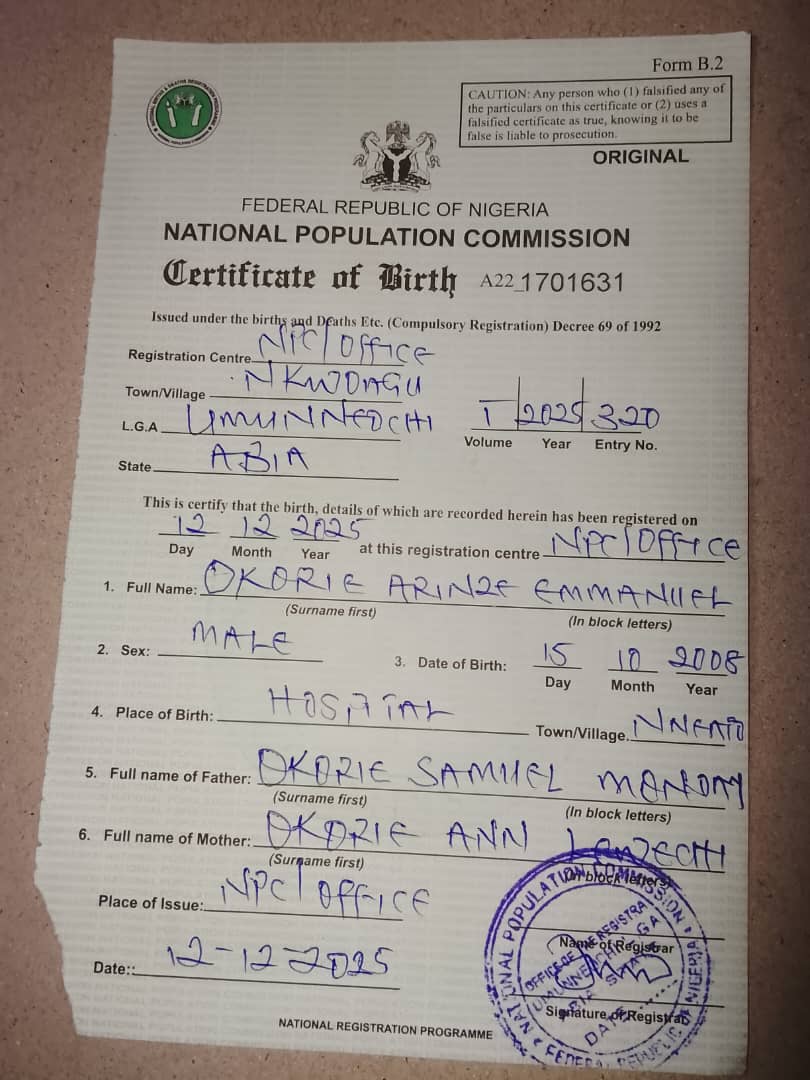 Form B.2
CAUTION: Any person who (1) falsified any of
the particulars on this certificate or (2) uses a
falsified certificate as true, knowing it to be
false is liable to prosecution.
ORIGINAL
FEDERAL REPUBLIC OF NIGERIA
NATIONAL POPULATION COMMISSION
Certificate of Birth A22_1701631
Issued under the births and Deaths Etc. (Compulsory Registration) Decree 69 of 1992
Registration Centre NPC/OFFICE
Town/Village NKWOAGU
L.G.A UMUNNEOCHI
I 2025 320
Volume Year Entry No.
State ABIA
This is certify that the birth, details of which are recorded herein has been registered on
12 12 2025 at this registration centre NPC/OFFICE
Day Month Year
1. Full Name: OKORIE ARINZE EMMANUEL
(Surname first) (In block letters)
2. Sex: MALE 3. Date of Birth: 15 10 2008
Day Month Year
4. Place of Birth: HOSPITAL Town/Village.
5. Full name of Father: OKORIE SAMUEL MONDAY
(Surname first) (In block letters)
6. Full name of Mother: OKORIE ANN
(Surname first) (In block letters)
Place of Issue: NPC/OFFICE
Name of Registrar
Date:: 12-12-2025
Signature of Registrar
NATIONAL REGISTRATION PROGRAMME
NATIONAL POPULATION COMMISSION
OFFICE OF THE REGISTRAR
UMUNNEOCHI LGA
ABIA STATE
DATE
FEDERAL REPUBLIC OF NIGERIA